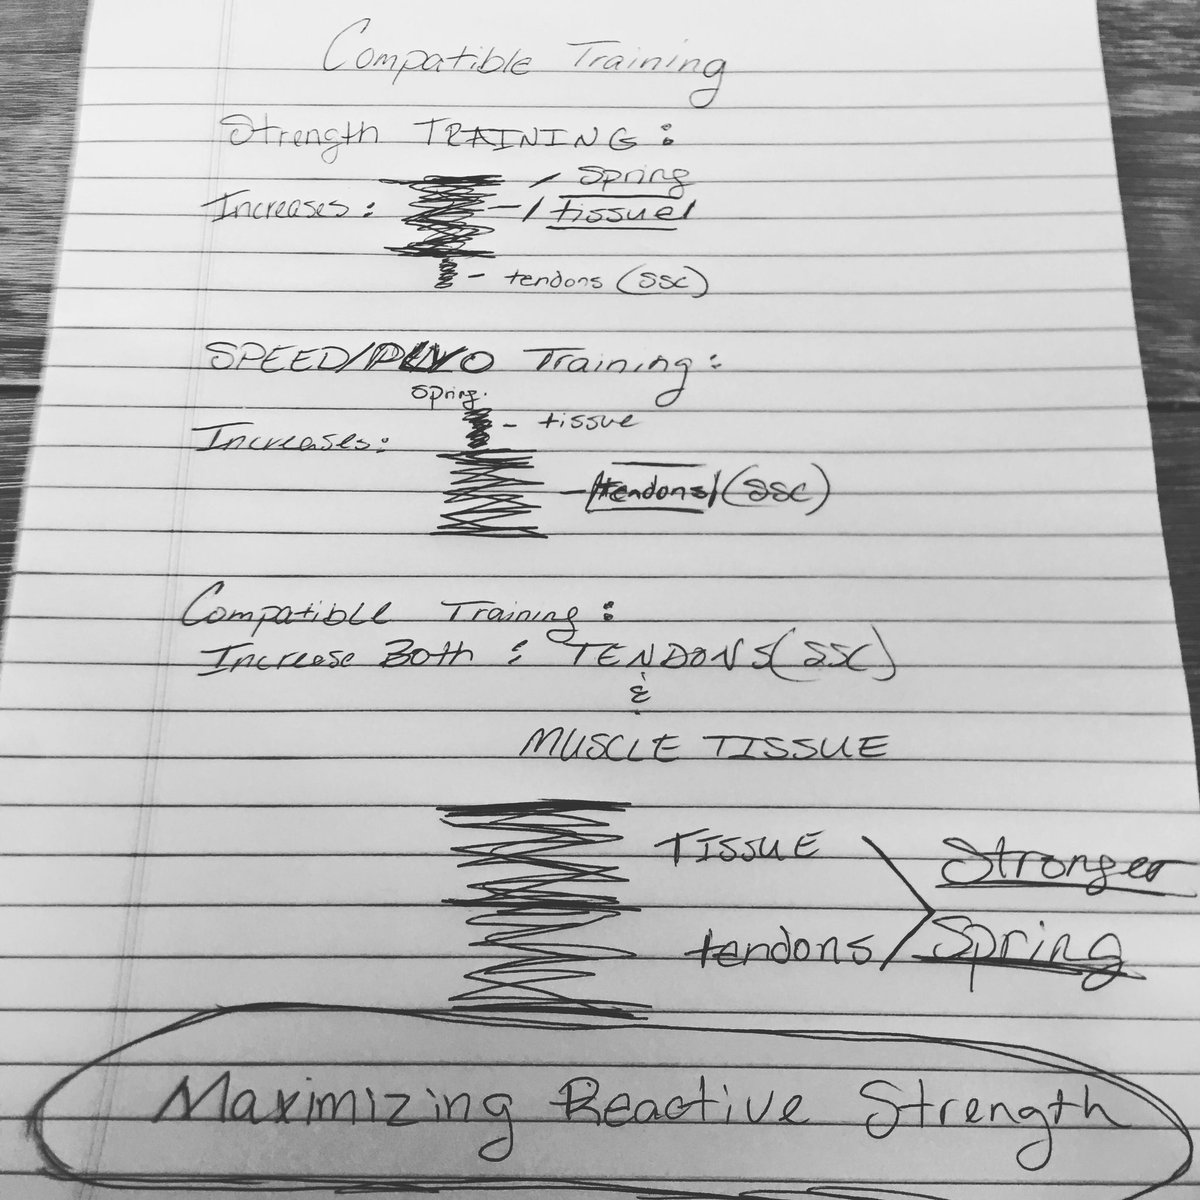 Compatible Training
Strength TRAINING:
Spring
Increases: - tissue
- tendons (SSC)
SPEED/PLYO Training:
Spring.
- tissue
Increases:
- tendons (SSC)
Compatible Training:
Increase Both: TENDONS (SSC)
&
MUSCLE TISSUE
TISSUE
Stronger
tendons
Spring
Maximizing Reactive Strength